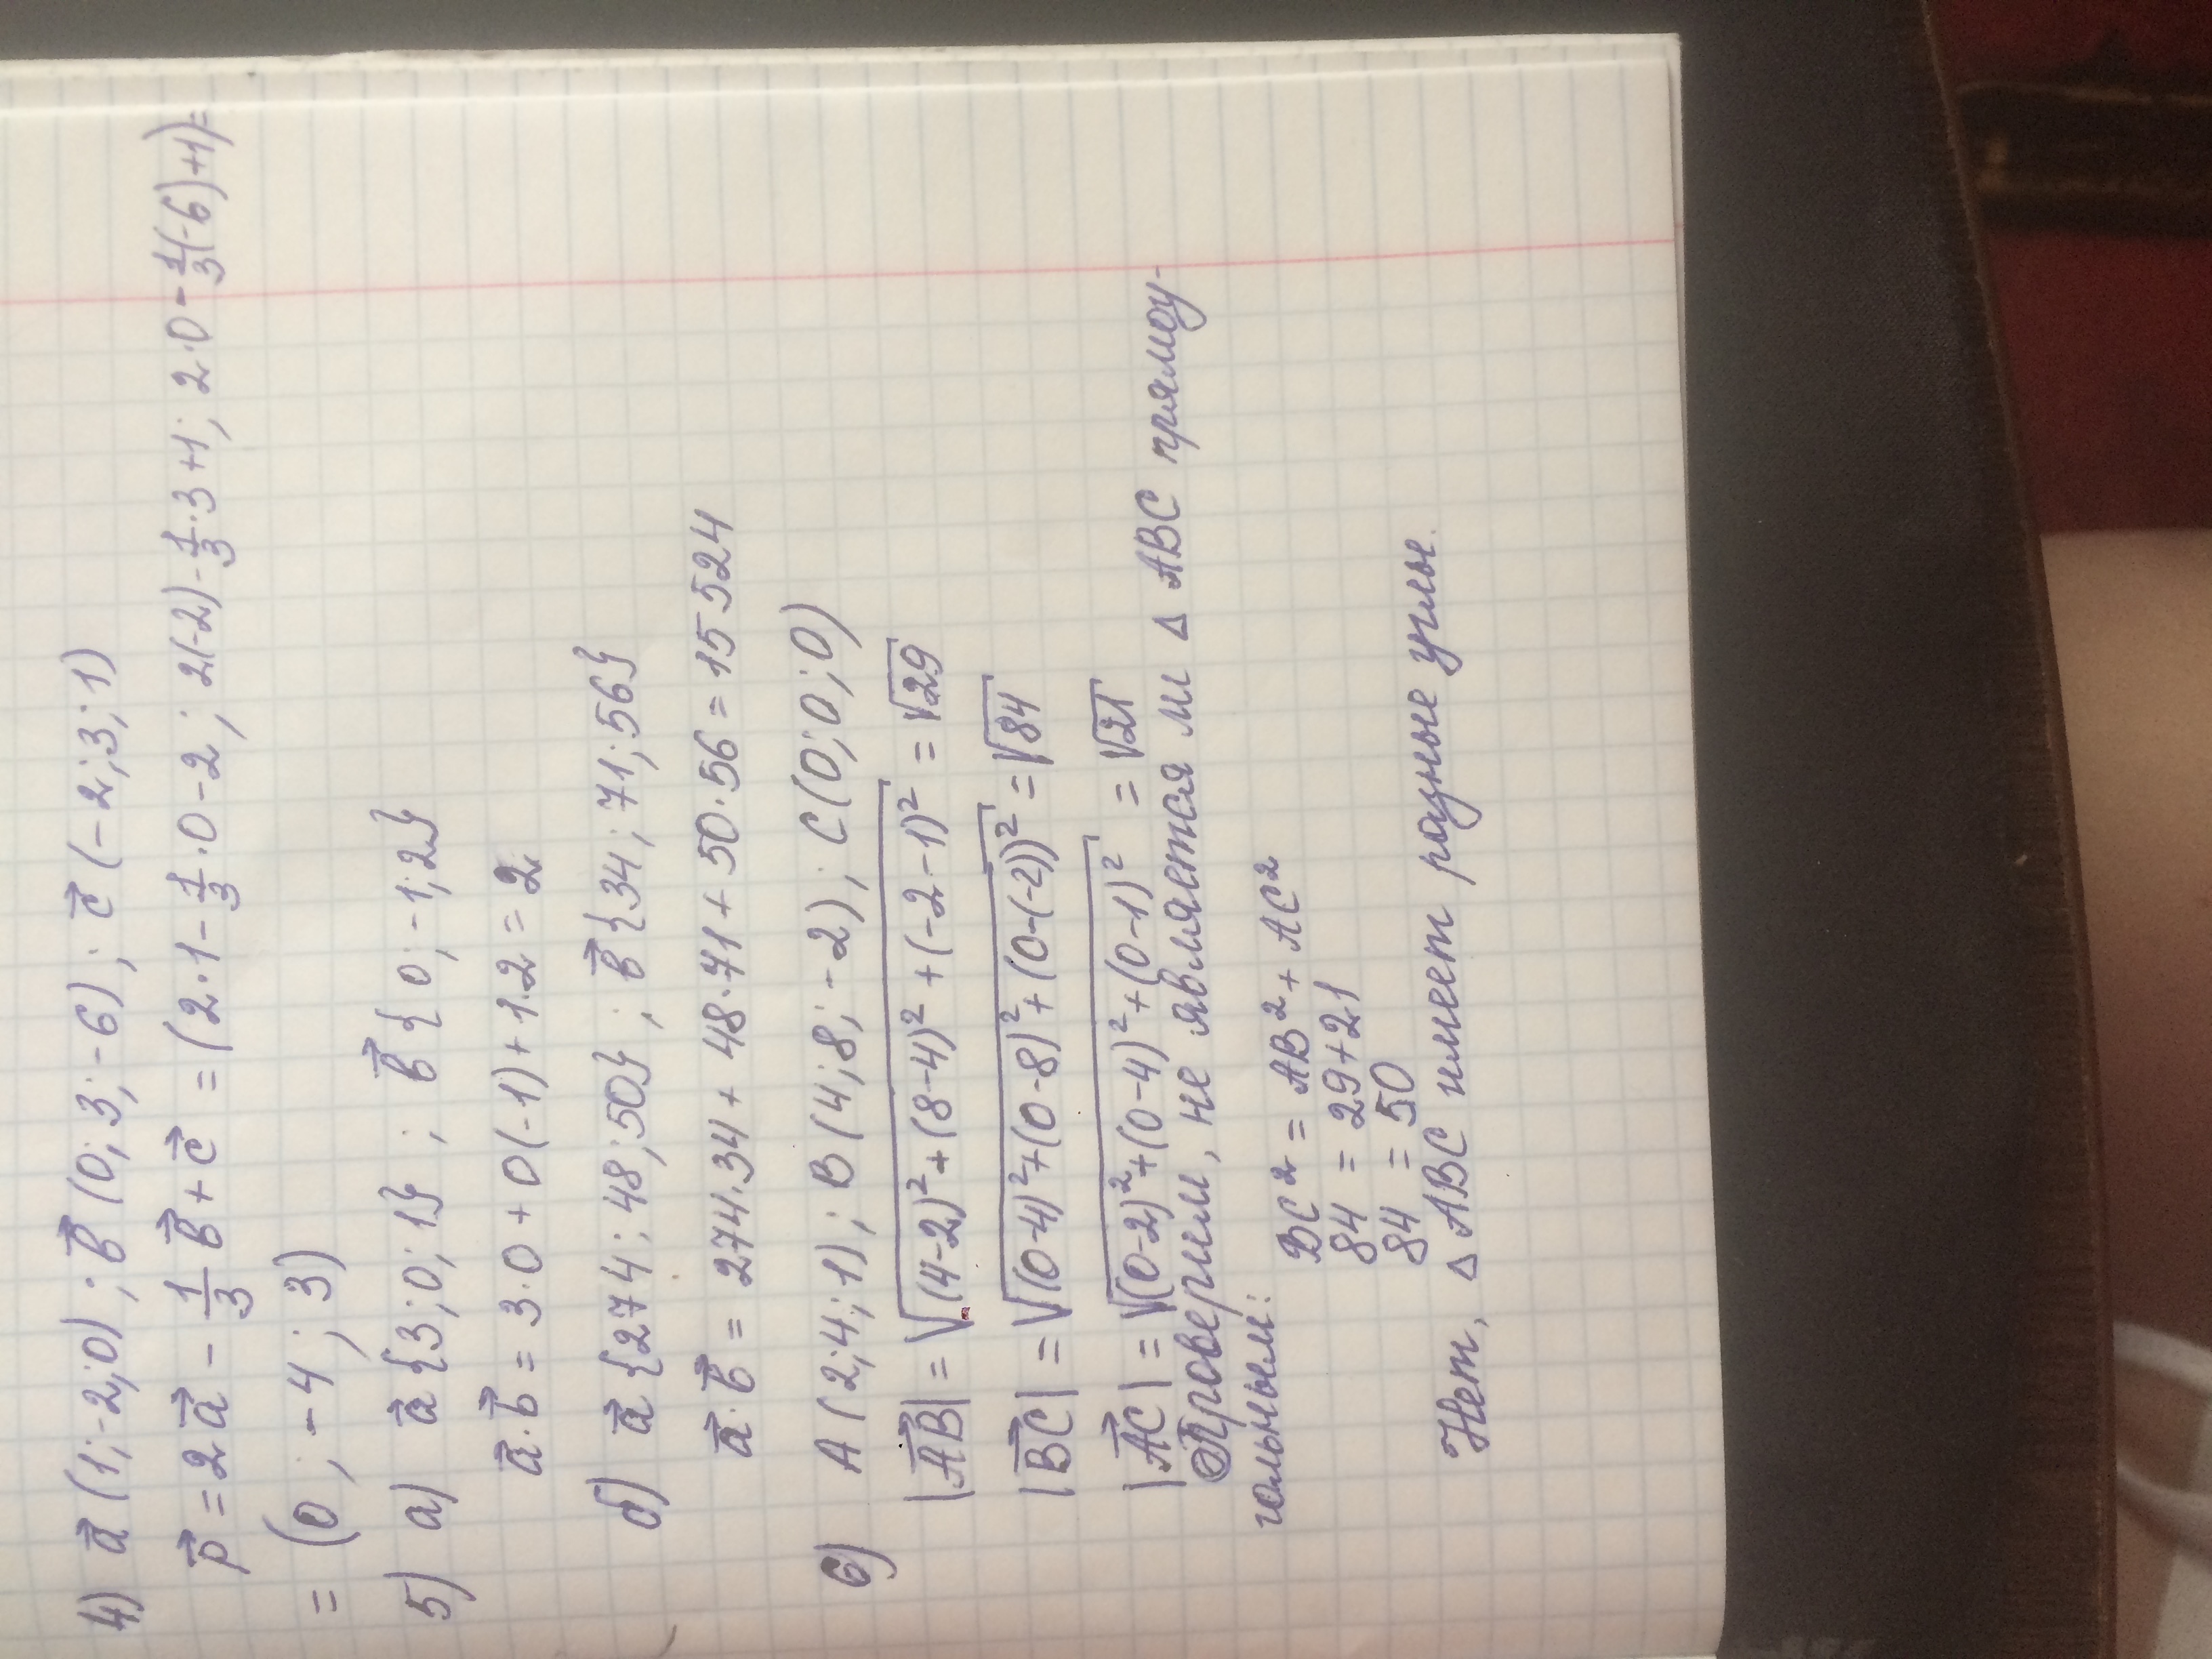 4) a⃗ (1; -2; 0); b⃗ (0; 3; -6); c⃗ (-2; 3; 1)
p⃗ = 2a⃗ - 1/3 b⃗ + c⃗ = (2·1 - 1/3·0 - 2; 2(-2) - 1/3·3 + 1; 2·0 - 1/3(-6) + 1) =
= (0; -4; 3)
5) а) a⃗ {3; 0; 1}; b⃗ {0; -1; 2}
a⃗·b⃗ = 3·0 + 0(-1) + 1·2 = 2
б) a⃗ {274; 48; 50}; b⃗ {34; 71; 56}
a⃗·b⃗ = 274·34 + 48·71 + 50·56 = 15524
6) A (2; 4; 1); B (4; 8; -2); C (0; 0; 0)
|AB⃗| = √(4-2)² + (8-4)² + (-2-1)² = √29
|BC⃗| = √(0-4)² + (0-8)² + (0-(-2))² = √84
|AC⃗| = √(0-2)² + (0-4)² + (0-1)² = √21
Проверим, не является ли Δ ABC прямоу-
гольным:
BC² = AB² + AC²
84 = 29 + 21
84 = 50
Нет, Δ ABC имеет разные углы.